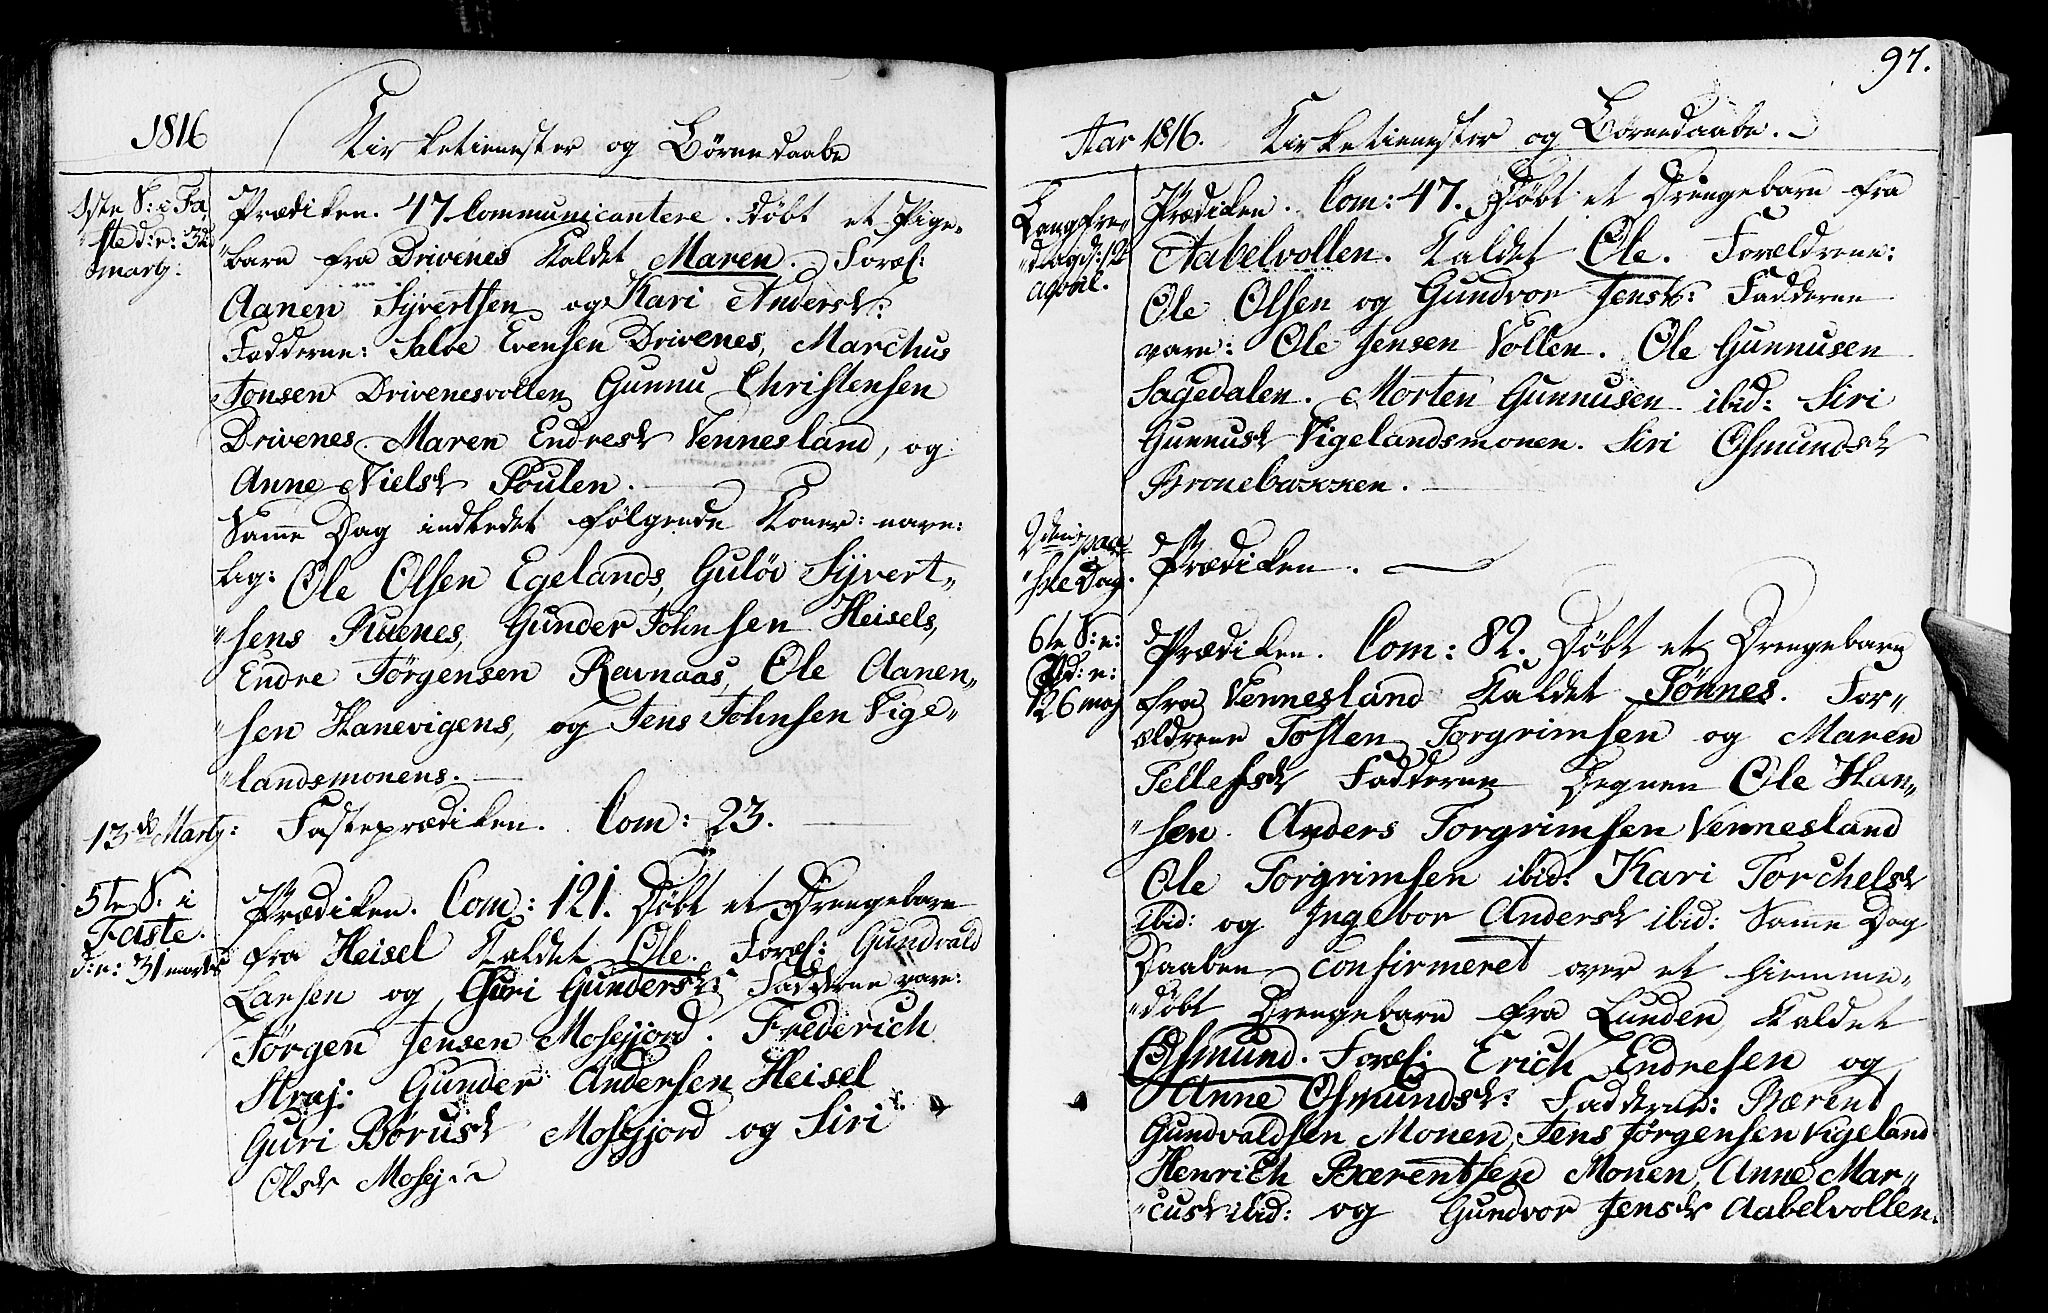 1816
Kirketienester og Börnedaabe
1ste S: i Fa-
"ste d: n: 3de
Marty:
Prædiken. 47 Communicantere. Döbt et Pige-
"barn fra Drivenes kaldet Maren. Foræl:
Aanen Syvertsen og Kari Andersdr:
Fadderne: Salve Evensen Drivenes, Marchus
Jonsen Drivenesvollen Gunnu Christensen
Drivenes Maren Endresdr Vennesland, og
Anne Nielsdr Poulen.
Samme Dag indledet fölgende Koner: nem-
lig: Ole Olsen Egelands, Gulöv Syvert-
"sens Ruenes, Gunder Johnsen Heisels,
Endre Jörgensen Ravnaas, Ole Aanen-
"sen Hanevigens, og Jens Johnsen Vige-
"landsmonens.
13de Marty: Fasteprædiken. Com: 23.
5te S: i
Faste.
d: n: 31 marts
Prædiken. Com: 121. Döbt et Drengebarn
fra Heisel kaldet Ole. Foræl: Gundvald
Larsen og Guri Gundersdr: Fadderne vare:
Jörgen Jensen Mosejord. Frederich
Straj: Gunder Andersen Heisel
Guri Börusdr Mosejord og Siri
Olsdr Mosej:
97.
Aar 1816. Kirketienester og Börnedaabe.
Langfre-
"dag d: 12
April.
Prædiken. Com: 47. Döbt et Drengebarn fra
Aabelvollen. kaldet Ole. Forældrene:
Ole Olsen og Gundvor Jensdr: Fadderne
vare: Ole Jensen Vollen. Ole Gunnusen
Sagedalen. Morten Gunnusen ibid: Siri
Gunnusdr Vigelandsmonen. Siri Osmundsdr
Bronebakken.
2den Paa-
"ske Dag.
Prædiken.
6te S: n:
P d: n:
26 maj
Prædiken. Com: 82. Döbt et Drengebarn
fra Vennesland kaldet Tönnes. For-
ældrene Tosten Torgrimsen og Maren
Tellefsdr Fadderne Degnen Ole Han-
"sen. Anders Torgrimsen Vennesland
Ole Torgrimsen ibid: Kari Torchelsdr
ibid: og Ingebor Andersdr ibid: Samme Dag
Daaben confirmeret over et hiemme-
"döbt Drengebarn fra Lunden, kaldet
Osmund. Foræl: Erich Endresen og
Anne Osmundsdr: Fadderne: Bærent
Gundvaldsen Monen, Jens Jörgensen Vigeland
Henrich Bærentsen Monen, Anne Mar-
"cusdr ibid: og Gundvor Jensdr Aabelvollen.